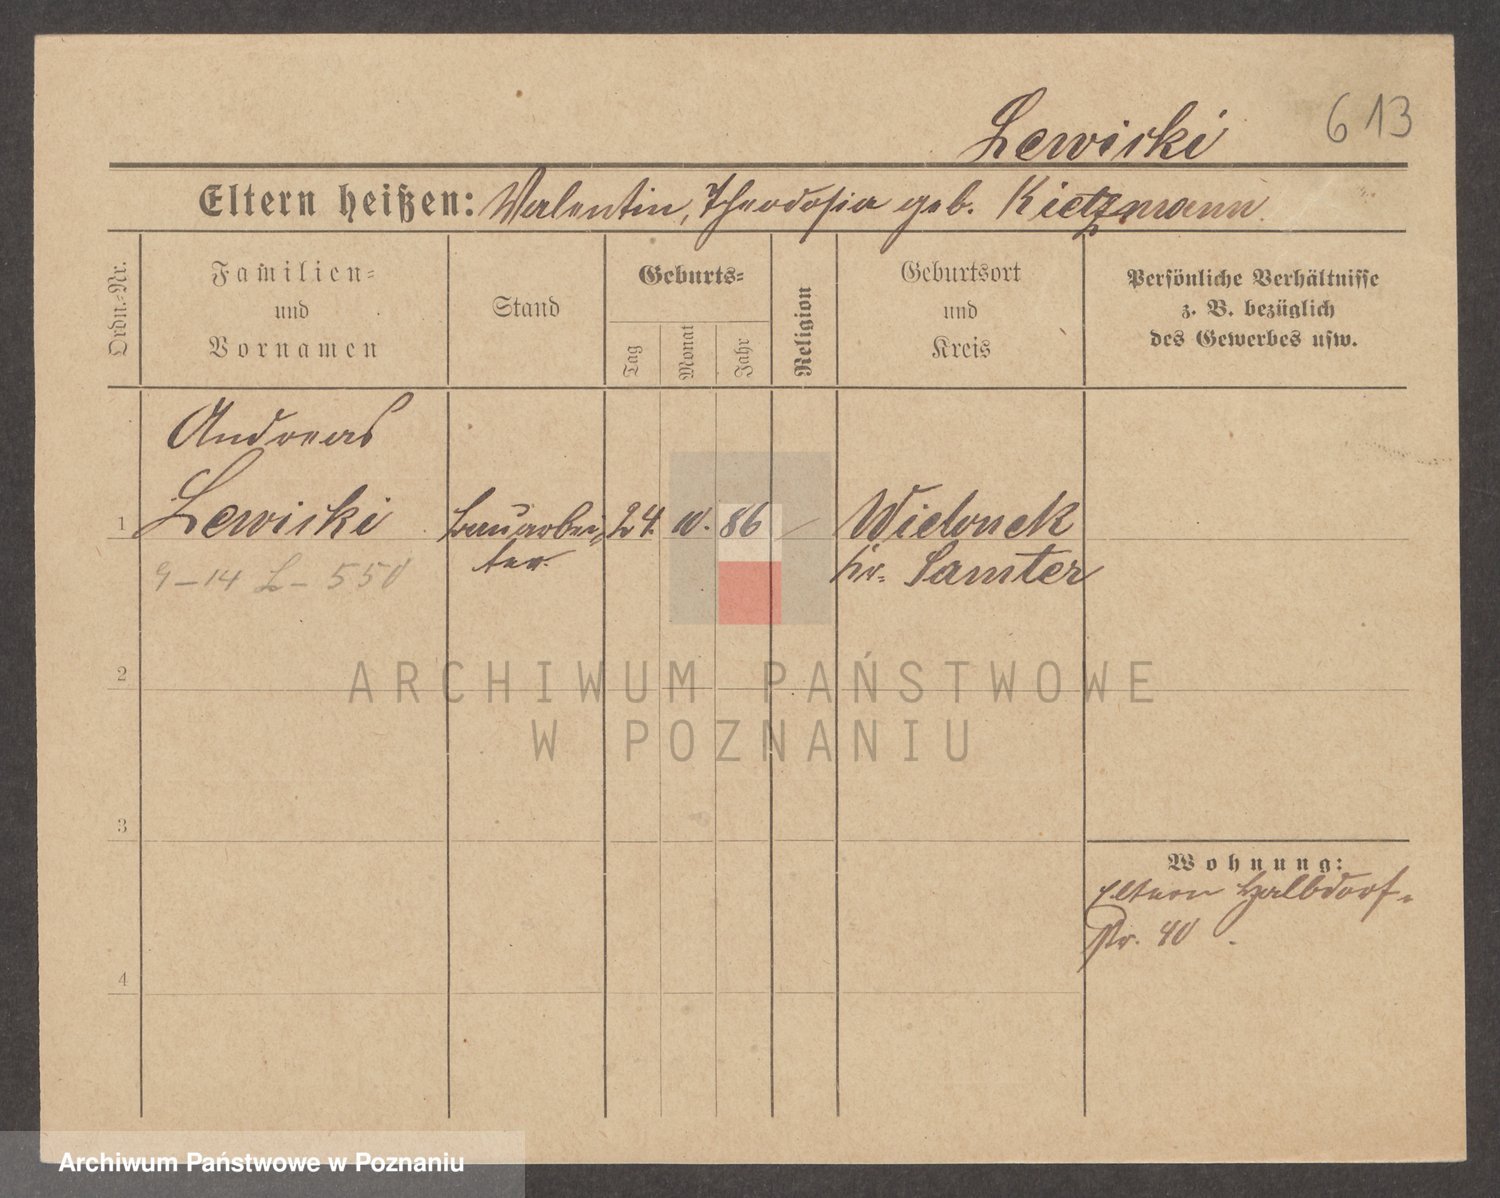 Lewicki
613
Eltern heißen: Valentin, Theodosia geb. Kietzmann.
Ordn.-Nr.
Familien-
und
Vornamen
Stand
Geburts-
Tag
Monat
Jahr
Religion
Geburtsort
und
Kreis
Persönliche Verhältnisse
z. B. bezüglich
des Gewerbes usw.
Andreas
1 Lewicki Bauarbei- 24. 10. 86 Wielonek
ter. Kr. Samter
9-14 L-550
2
ARCHIWUM PAŃSTWOWE
W POZNANIU
3
Wohnung:
Eltern Halbdorf-
str. 40
4
Archiwum Państwowe w Poznaniu